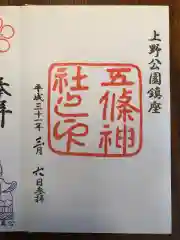 上野公園鎮座
五條神
社之印
平成三十一年三月六日参拝
奉拝